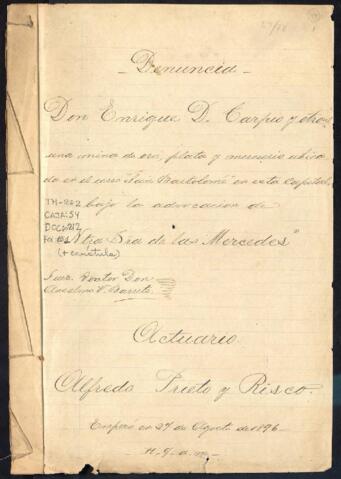 - Denuncia -
Don Enrique D. Carpio y otro,
una mina de oro, plata y mercurio ubica
da en el cerro "San Bartolomé" en esta Capital,
TH-2
CAJA:54
DOC:
bajo la advocacion de
"Ntra Sra de las Mercedes"
(+ carátula)
Juez. Doctor Don
Anselmo V. Barreto
Actuario.
Alfredo Prieto y Risco.
Empezó en 27 de Agosto de 1896 -